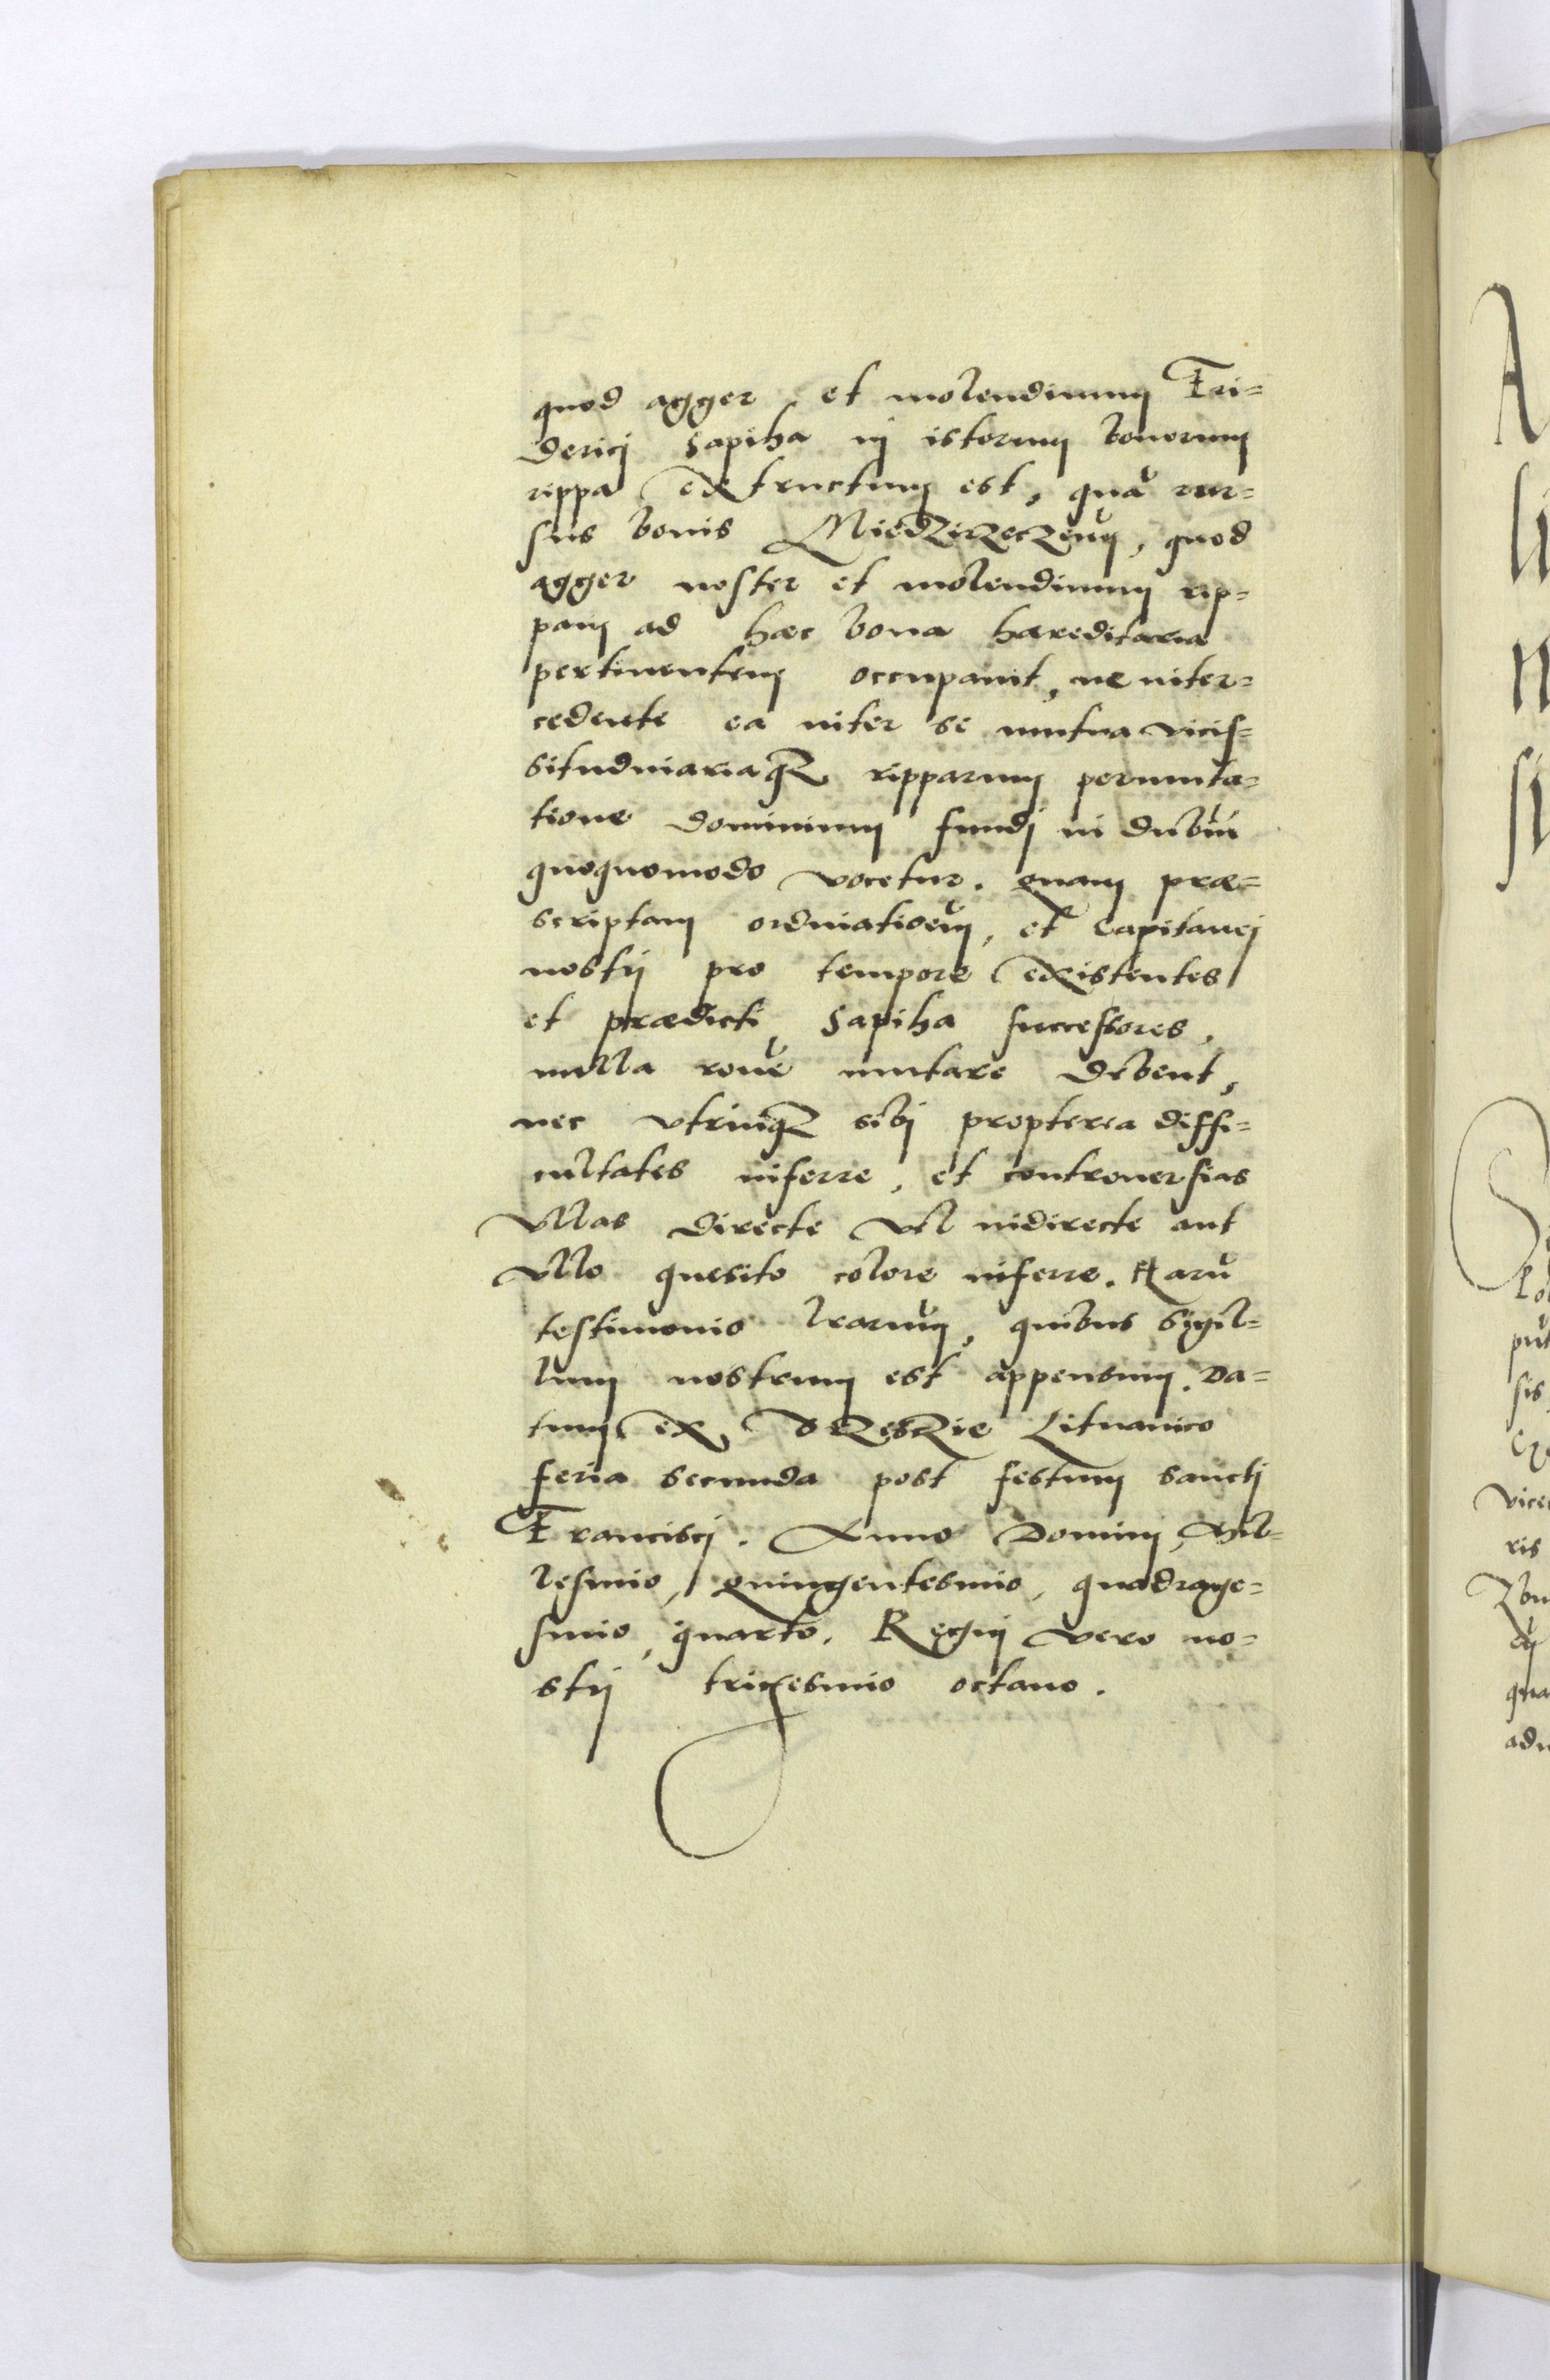 quod agger, et molendinum Fri=
dericj Sapiha in istorum bonorum
rippa extructum est, quã rur=
sus bonis Miedzirzeczeñ, quod
agger noster et molendinum rip=
pam ad hæc bona hæreditaria
pertinentem occupauit, ne inter=
cedente ea inter se mutua vicis=
situdinariaqz ripparum permuta=
tione dominium fundj in dubiũ
quoquomodo vocetur. quam præ=
scriptam ordinatioẽm, et Capitanej
nostrj pro tempore existentes
et prædicti Sapiha successores,
nulla rõne mutare debent,
nec vtrinqz sibj propterea diffi=
cultates inferre, et controuersias
vllas directe vel indirecte aut
vllo quesito colore inferre. Harũ
testimonio lrarum, quibus sigil=
lum nostrum est appensum. Da=
tum ex Brzesczie Lituanico
feria secunda post festum sanctj
Franciscj. Anno Dominj Mil=
lesimo, quingentesimo, quadrage=
simo, quarto. Regnj vero no=
strj trigesimo octauo.
A
li
n
si